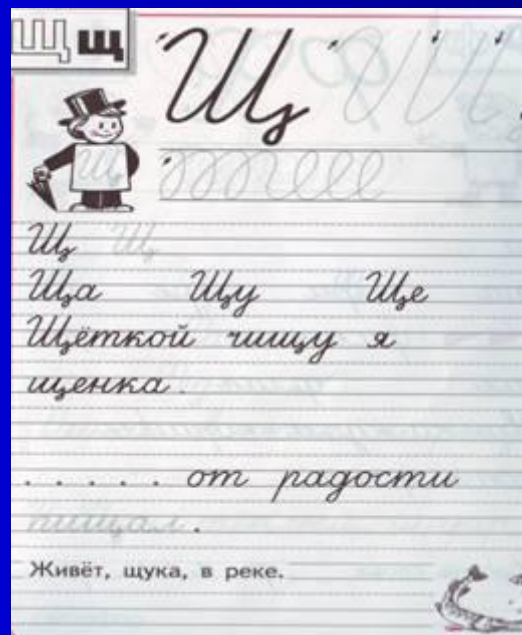 Щ щ
Щ
Щ
Щ Щ
Ща Щу Ще
Щёткой чищу я
щенка.
. . . . . от радости
пищал.
Живёт, щука, в реке.